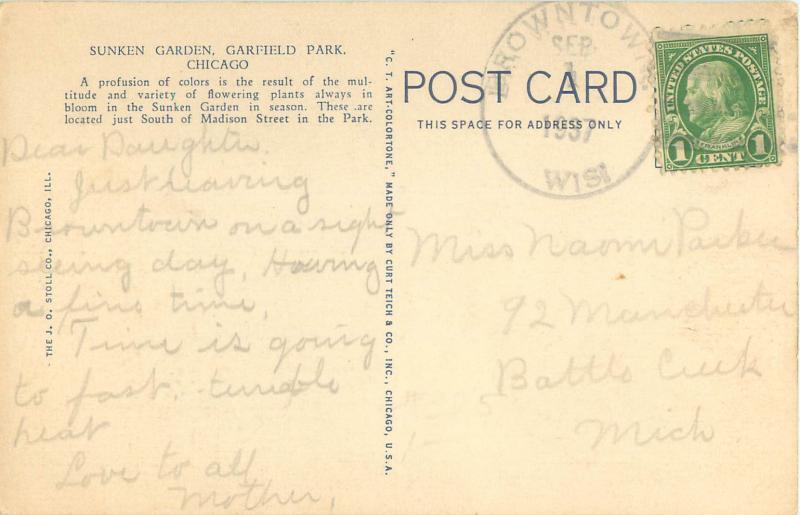 SUNKEN GARDEN, GARFIELD PARK,
CHICAGO
A profusion of colors is the result of the mul-
titude and variety of flowering plants always in
bloom in the Sunken Garden in season. These are
located just South of Madison Street in the Park.
Dear Daughter.
Just leaving
Browntown on a sight
seeing day, Having
a fine time,
Time is going
to fast. terrible
heat
Love to all
Mother,
THE J. O. STOLL CO., CHICAGO, ILL.
"C. T. ART-COLORTONE," MADE ONLY BY CURT TEICH & CO., INC., CHICAGO, U.S.A.
POST CARD
THIS SPACE FOR ADDRESS ONLY
BROWNTOWN
SEP
1
1937
WIS
UNITED STATES POSTAGE
FRANKLIN
1 CENT 1
Miss Naomi Parker
92 Manchester
Battle Creek
Mich